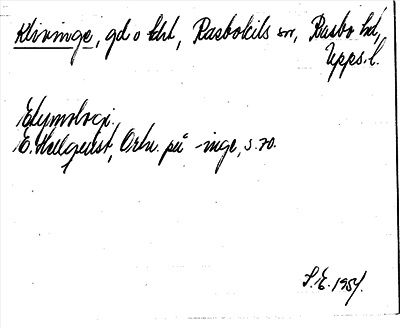 Klivinge, gd o hht, Rasbokils sn, Rasbo hd,
Upps. l.
Etymologi.
E. Hellquist, Ortn. på -inge, s. 70.
S.E. 1954.